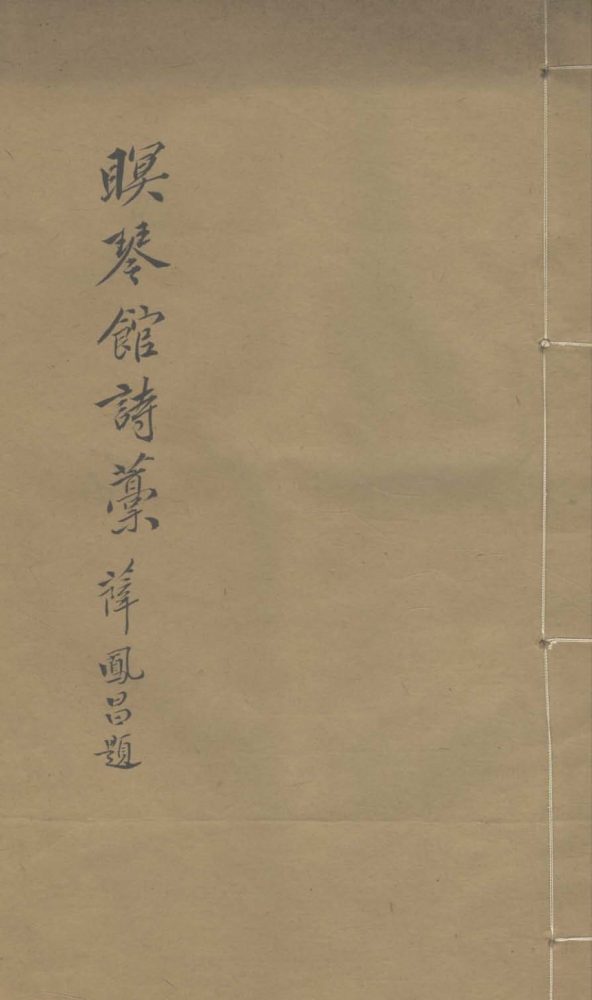 瞑琴館詩藁 薛鳳昌題